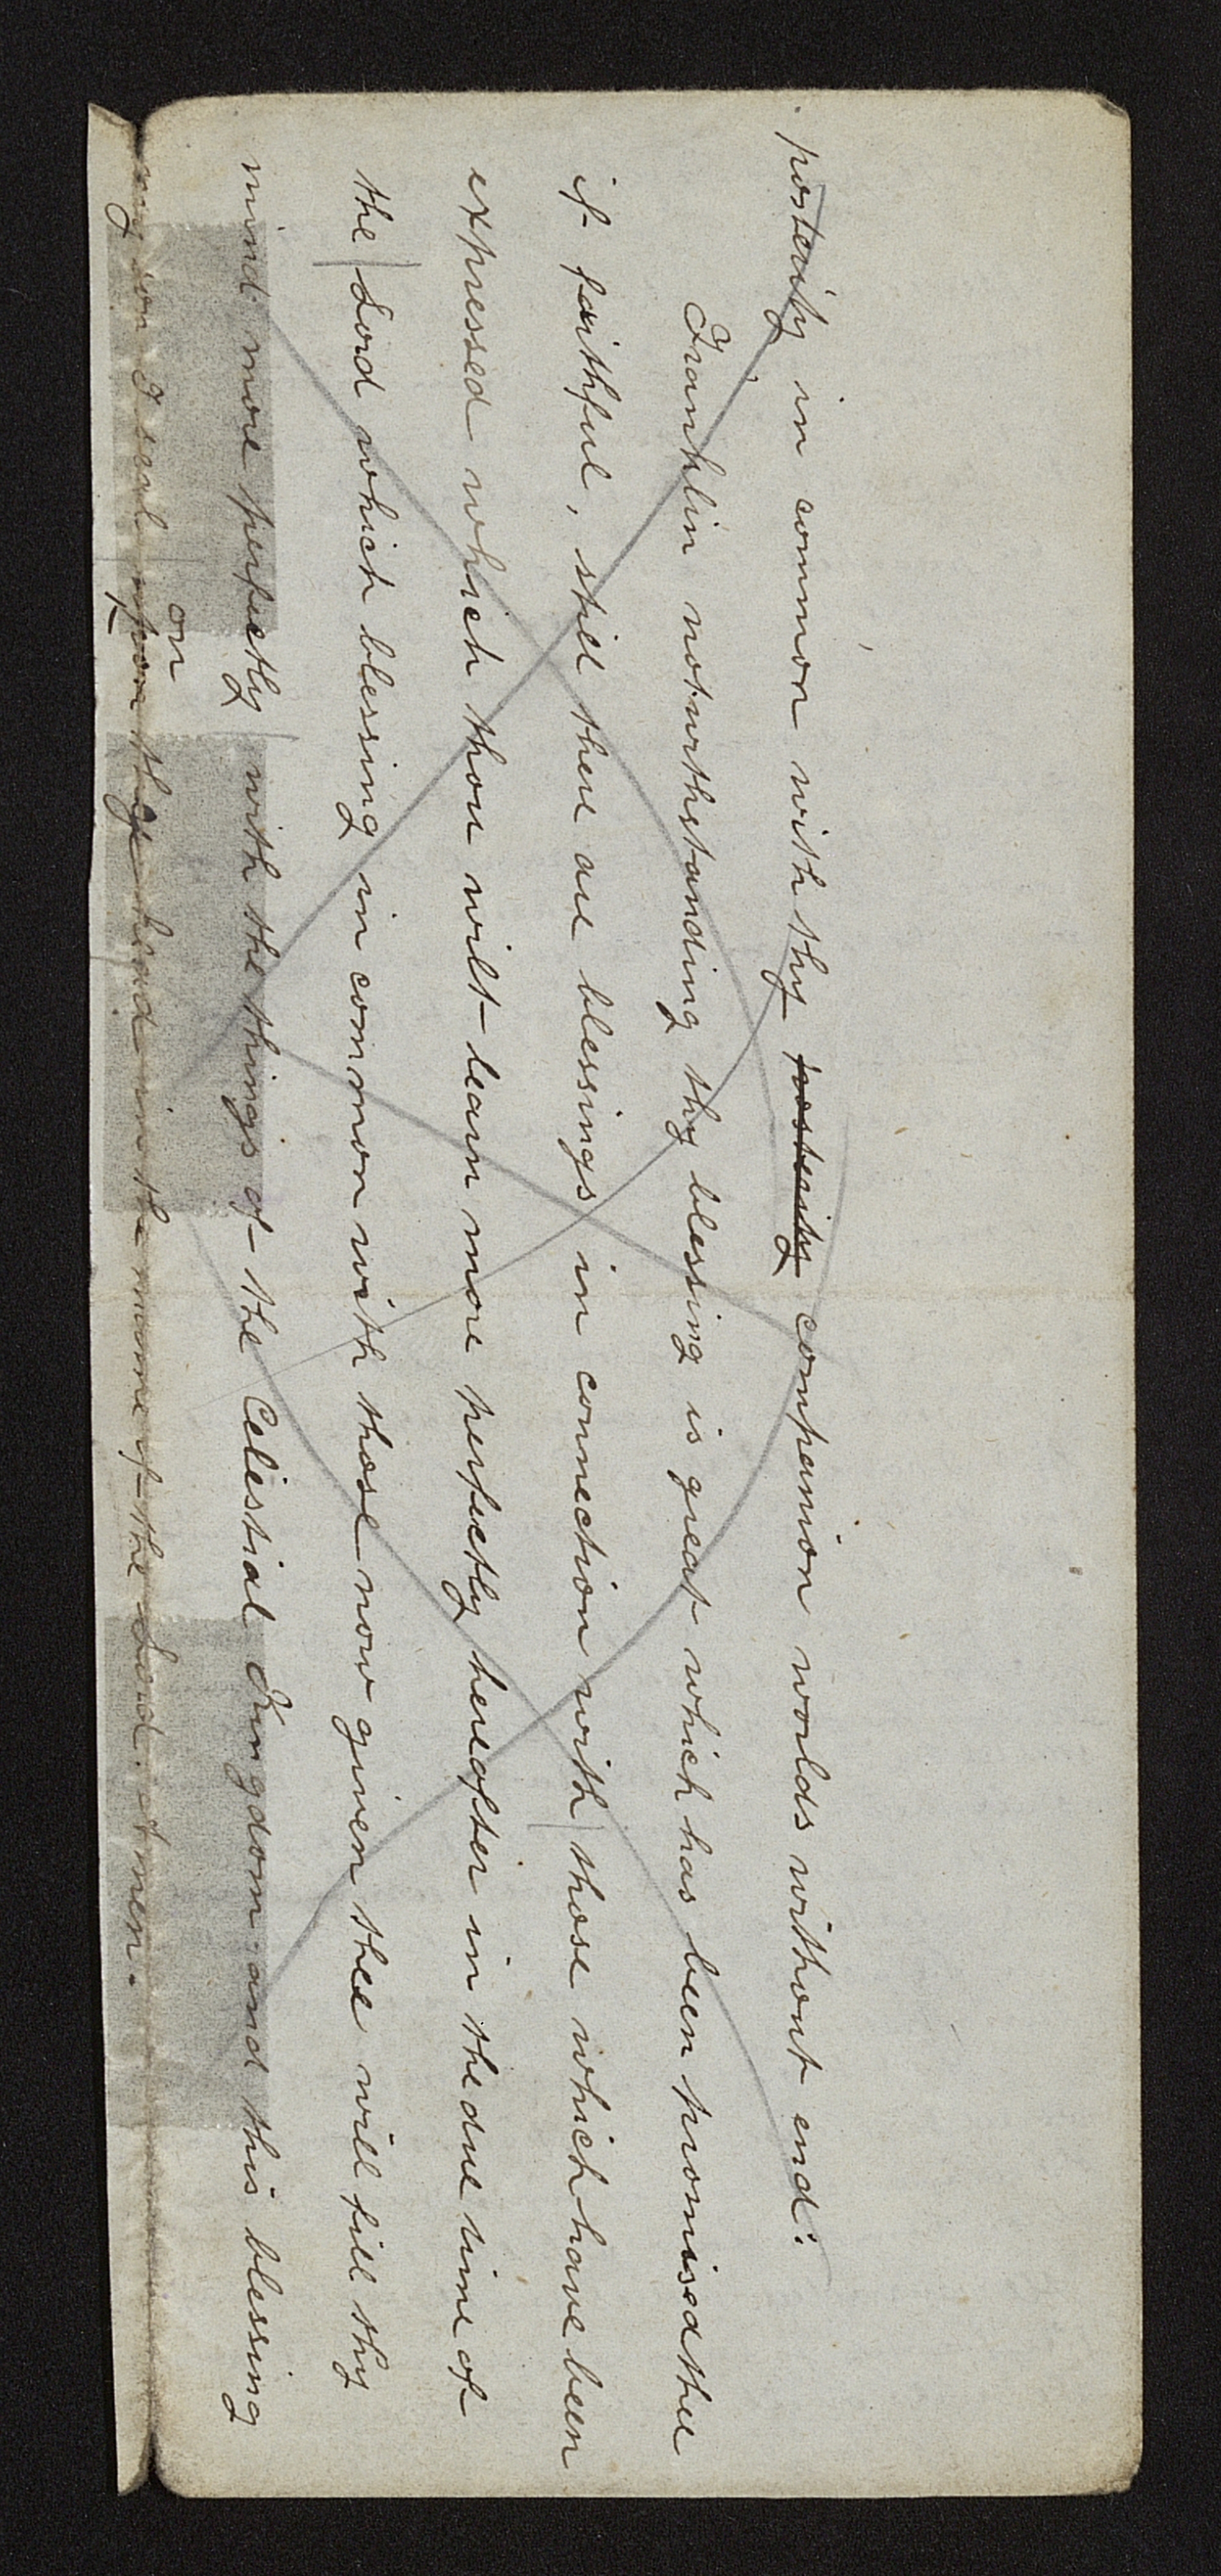 posterity in common with thy posterity companion worlds without end.
Franklin notwithstanding thy blessing is great which has been promised thee
if faithful, still there are blessings in connection with those which have been
expressed which thou wilt learn more perfectly hereafter in the due time of
the Lord which blessing in common with those now given thee will fill thy
mind more perfectly with the things of the Celestial Kingdom and this blessing
on
my son I seal upon thy head in the name of the Lord. Amen.